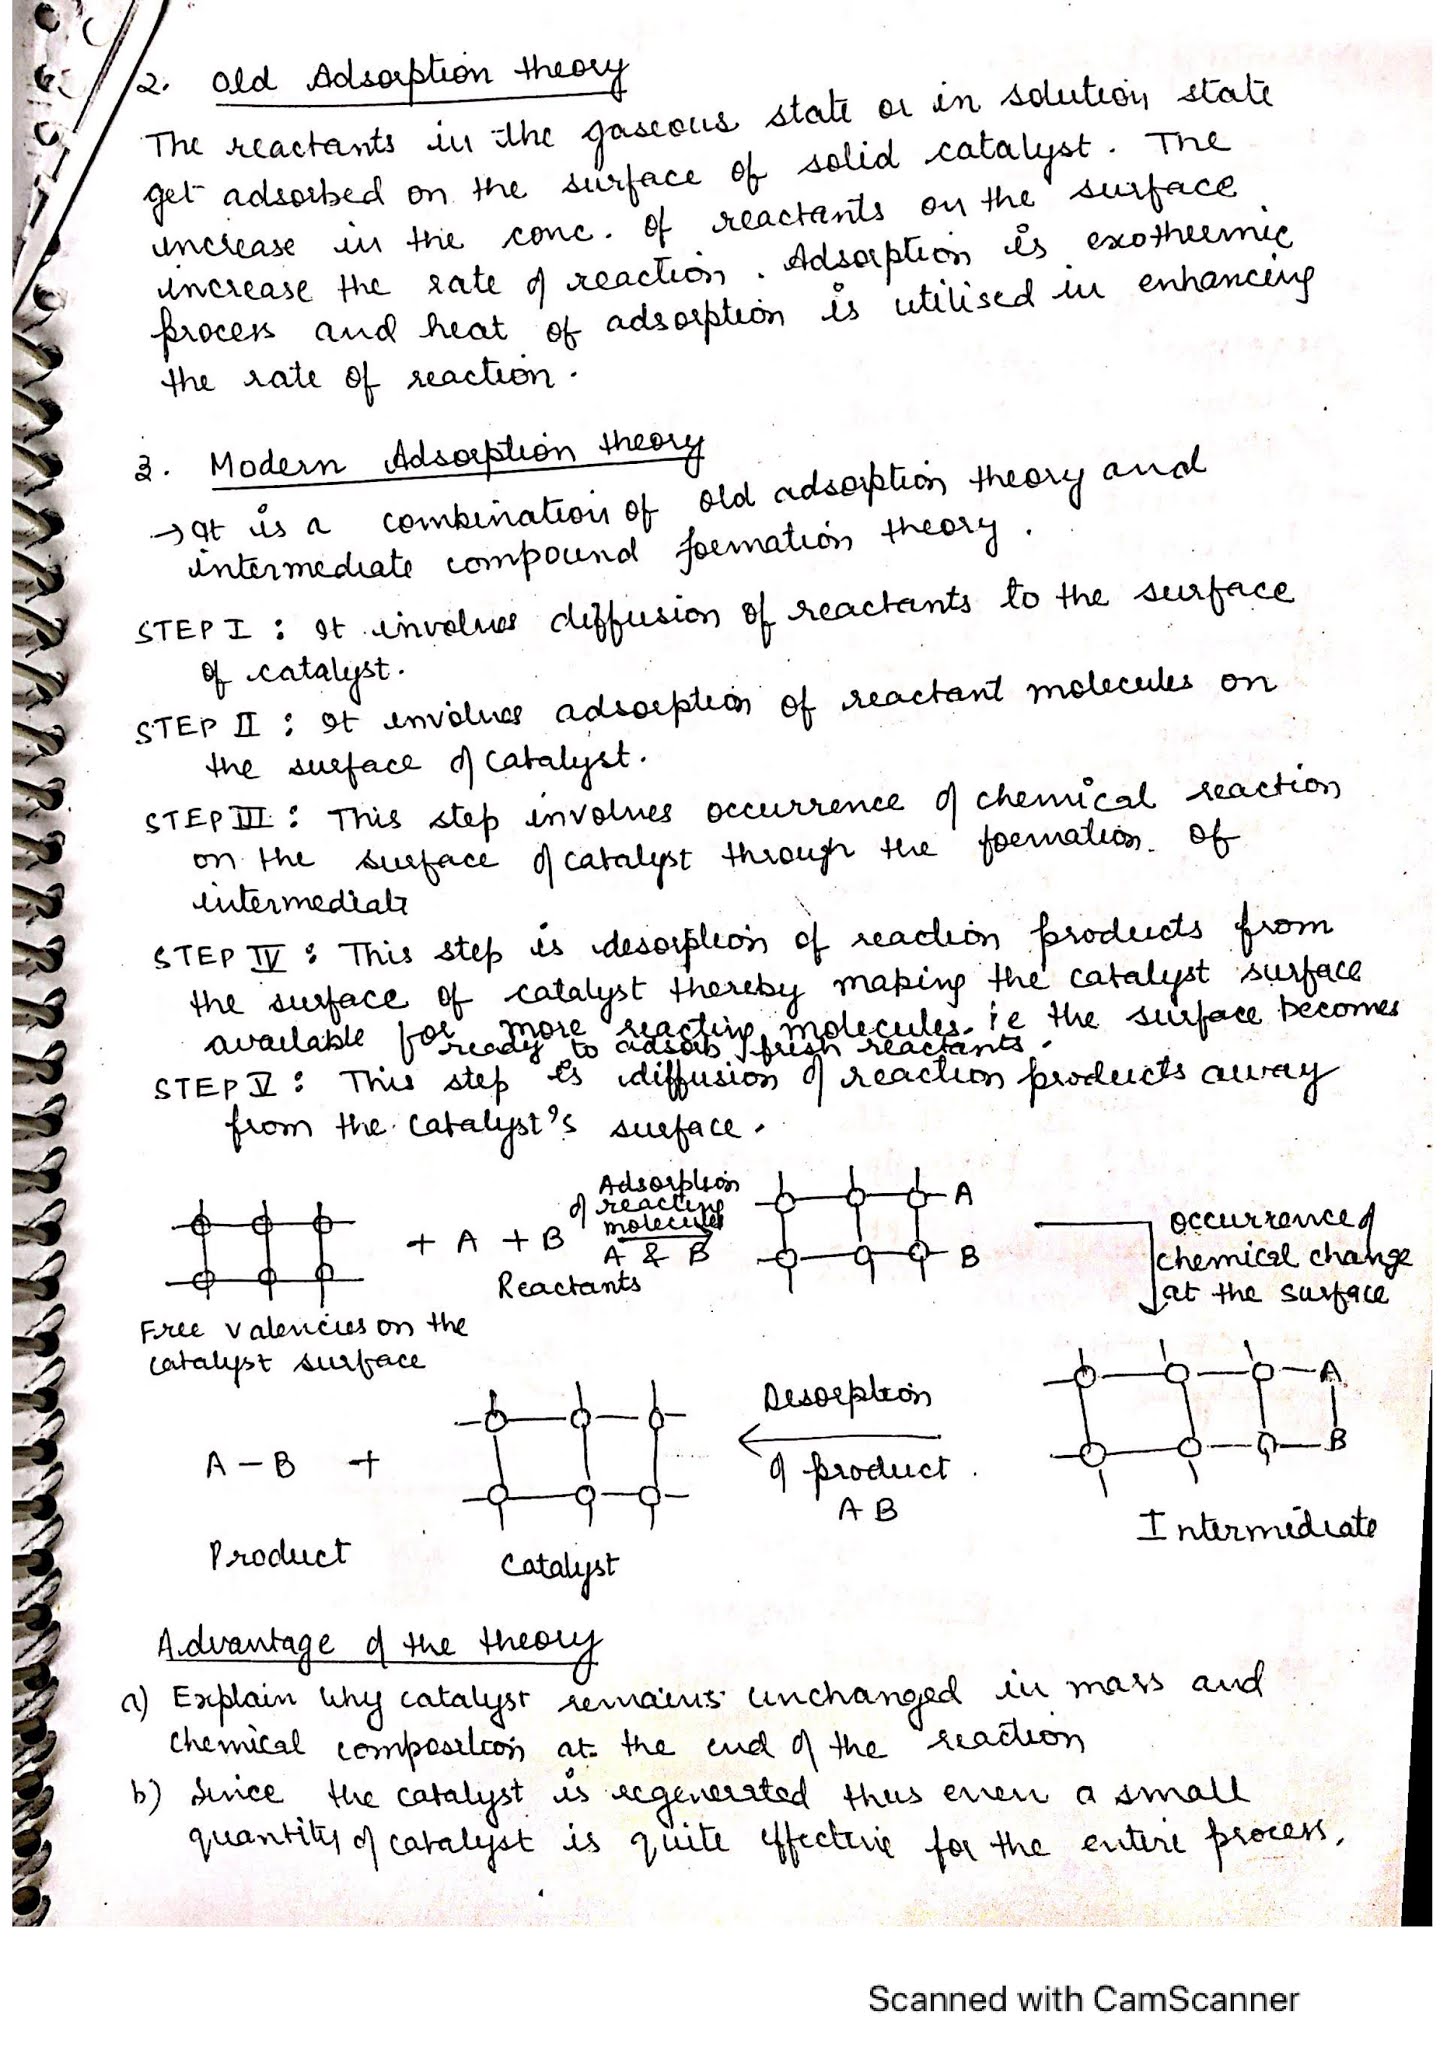 2. Old Adsorption theory
The reactants in the gaseous state or in solution state
get adsorbed on the surface of solid catalyst. The
increase in the conc. of reactants on the surface
increase the rate of reaction. Adsorption is exothermic
process and heat of adsorption is utilised in enhancing
the rate of reaction.
3. Modern Adsorption theory
→ It is a combination of old adsorption theory and
intermediate compound formation theory.
STEP I : It involves diffusion of reactants to the surface
of catalyst.
STEP II : It involves adsorption of reactant molecules on
the surface of catalyst.
STEP III : This step involves occurrence of chemical reaction
on the surface of catalyst through the formation of
intermediate
STEP IV : This step is desorption of reaction products from
the surface of catalyst thereby making the catalyst surface
available for more reacting molecules. ie the surface becomes
ready to adsorb fresh reactants.
STEP V : This step is diffusion of reaction products away
from the catalyst's surface.
Adsorption
of reacting
molecules
A & B
+ A + B
Reactants
A
B
occurrence of
chemical change
at the surface
Free valencies on the
catalyst surface
A
B
Intermediate
Desorption
of product
AB
A - B +
Product
Catalyst
Advantage of the theory
a) Explain why catalyst remains unchanged in mass and
chemical composition at the end of the reaction
b) Since the catalyst is regenerated thus even a small
quantity of catalyst is quite effective for the entire process.
Scanned with CamScanner